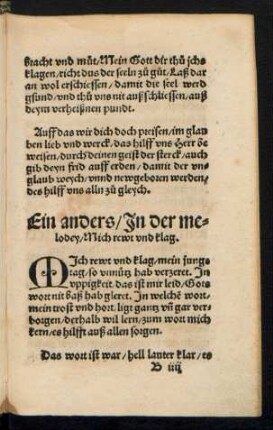 bracht vnd müt/Mein Gott dir thů ichs
klagen/richt dus der seeln zů gůt/Laß dar
an wol erschiessen/damit die seel werd
gsund/vnd thů vns nit außschliessen/auß
deym verheißnen pundt.
Auff das wir dich doch preisen/im glau
ben lieb vnd werck/das hilff vns Herr be
weisen/durch deinen geist der sterck/auch
gib deyn frid auff erden/damit der vn
glaub weych/vnnd newgeboren werden/
des hilff vns alln zů gleych.
Ein anders/In der me-
lodey/Mich rewt vnd klag.
MIch rewt vnd klag/mein jungs
tag/so vnnütz hab verzeret. In
vppigkeit das ist mir leid/Gots
wort nit baß hab gleret. In welchē wort/
mein trost vnd hort/ligt gantz vñ gar ver-
borgen/derhalb wil lern/zum wort mich
kern/es hilfft auß allen sorgen.
Das wort ist war/hell lauter klar/es
B iiij